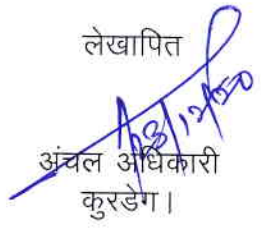 लेखापित
23/12/20
अंचल अधिकारी
कुरडेग।